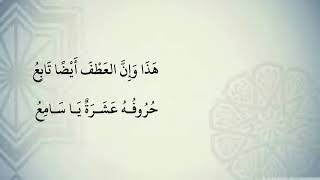 هَذَا وَإِنَّ العَطْفَ أَيْضًا تَابِعُ
حُرُوفُـهُ عَشَـرَةٌ يَـا سَـامِعُ